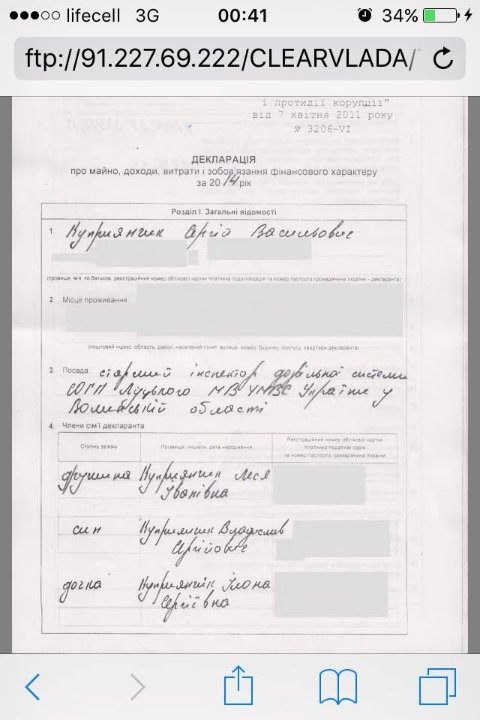 lifecell 3G 00:41 34%
ftp://91.227.69.222/CLEARVLADA/
і протидії корупції"
від 7 квітня 2011 року
№ 3206-VI
ДЕКЛАРАЦІЯ
про майно, доходи, витрати і зобов'язання фінансового характеру
за 2014 рік
Розділ І. Загальні відомості
1. Куприянчик Сергій Васильович
(прізвище, ім'я, по батькові, реєстраційний номер облікової картки платника податків/серія та номер паспорта громадянина України - декларанта)
2. Місце проживання:
(поштовий індекс, область, район, населений пункт, вулиця, номер будинку, корпусу, квартири декларанта)
3. Посада: старший інспектор дозвільної системи
СОГП Луцького МВ УМВС України у
Волинській області
4. Члени сім'ї декларанта:
Ступінь зв'язку
Прізвище, ініціали, дата народження
Реєстраційний номер облікової картки
платника податків/серія
та номер паспорта громадянина України
дружина Куприянчик Леся
Іванівна
син Куприянчик Владислав
Сергійович
дочка Куприянчік Ілона
Сергіївна